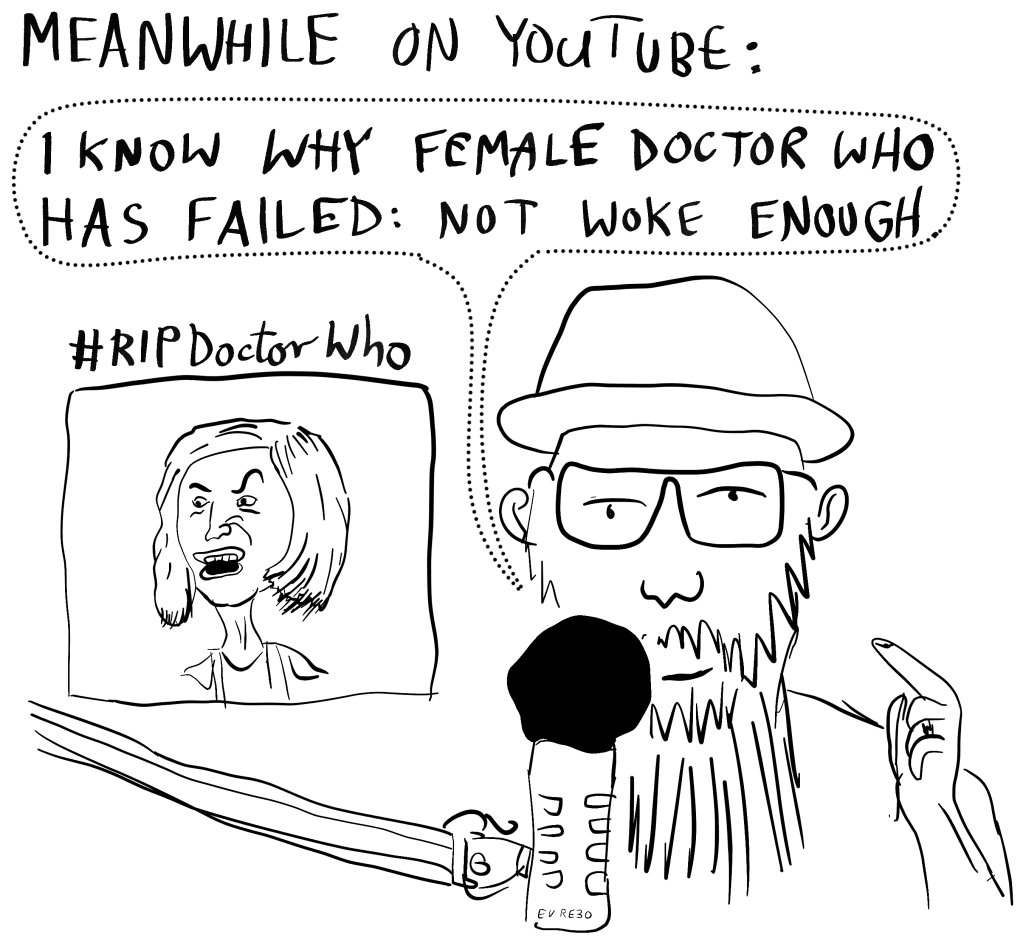 MEANWHILE ON YOUTUBE:
I KNOW WHY FEMALE DOCTOR WHO
HAS FAILED: NOT WOKE ENOUGH.
#RIPDoctorWho
EV RE30